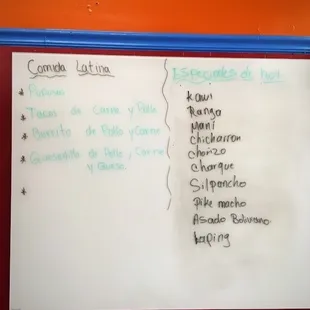 Comida Latina
Tacos de Carne y Pollo
Burrito de Pollo y Carne
Quesadilla de Pollo, Carne
y Queso
Especiales de hoy
Kawi
Ranga
Mani
chicharron
chorizo
charque
Silpancho
pike macho
Asado Boliviano
kaping